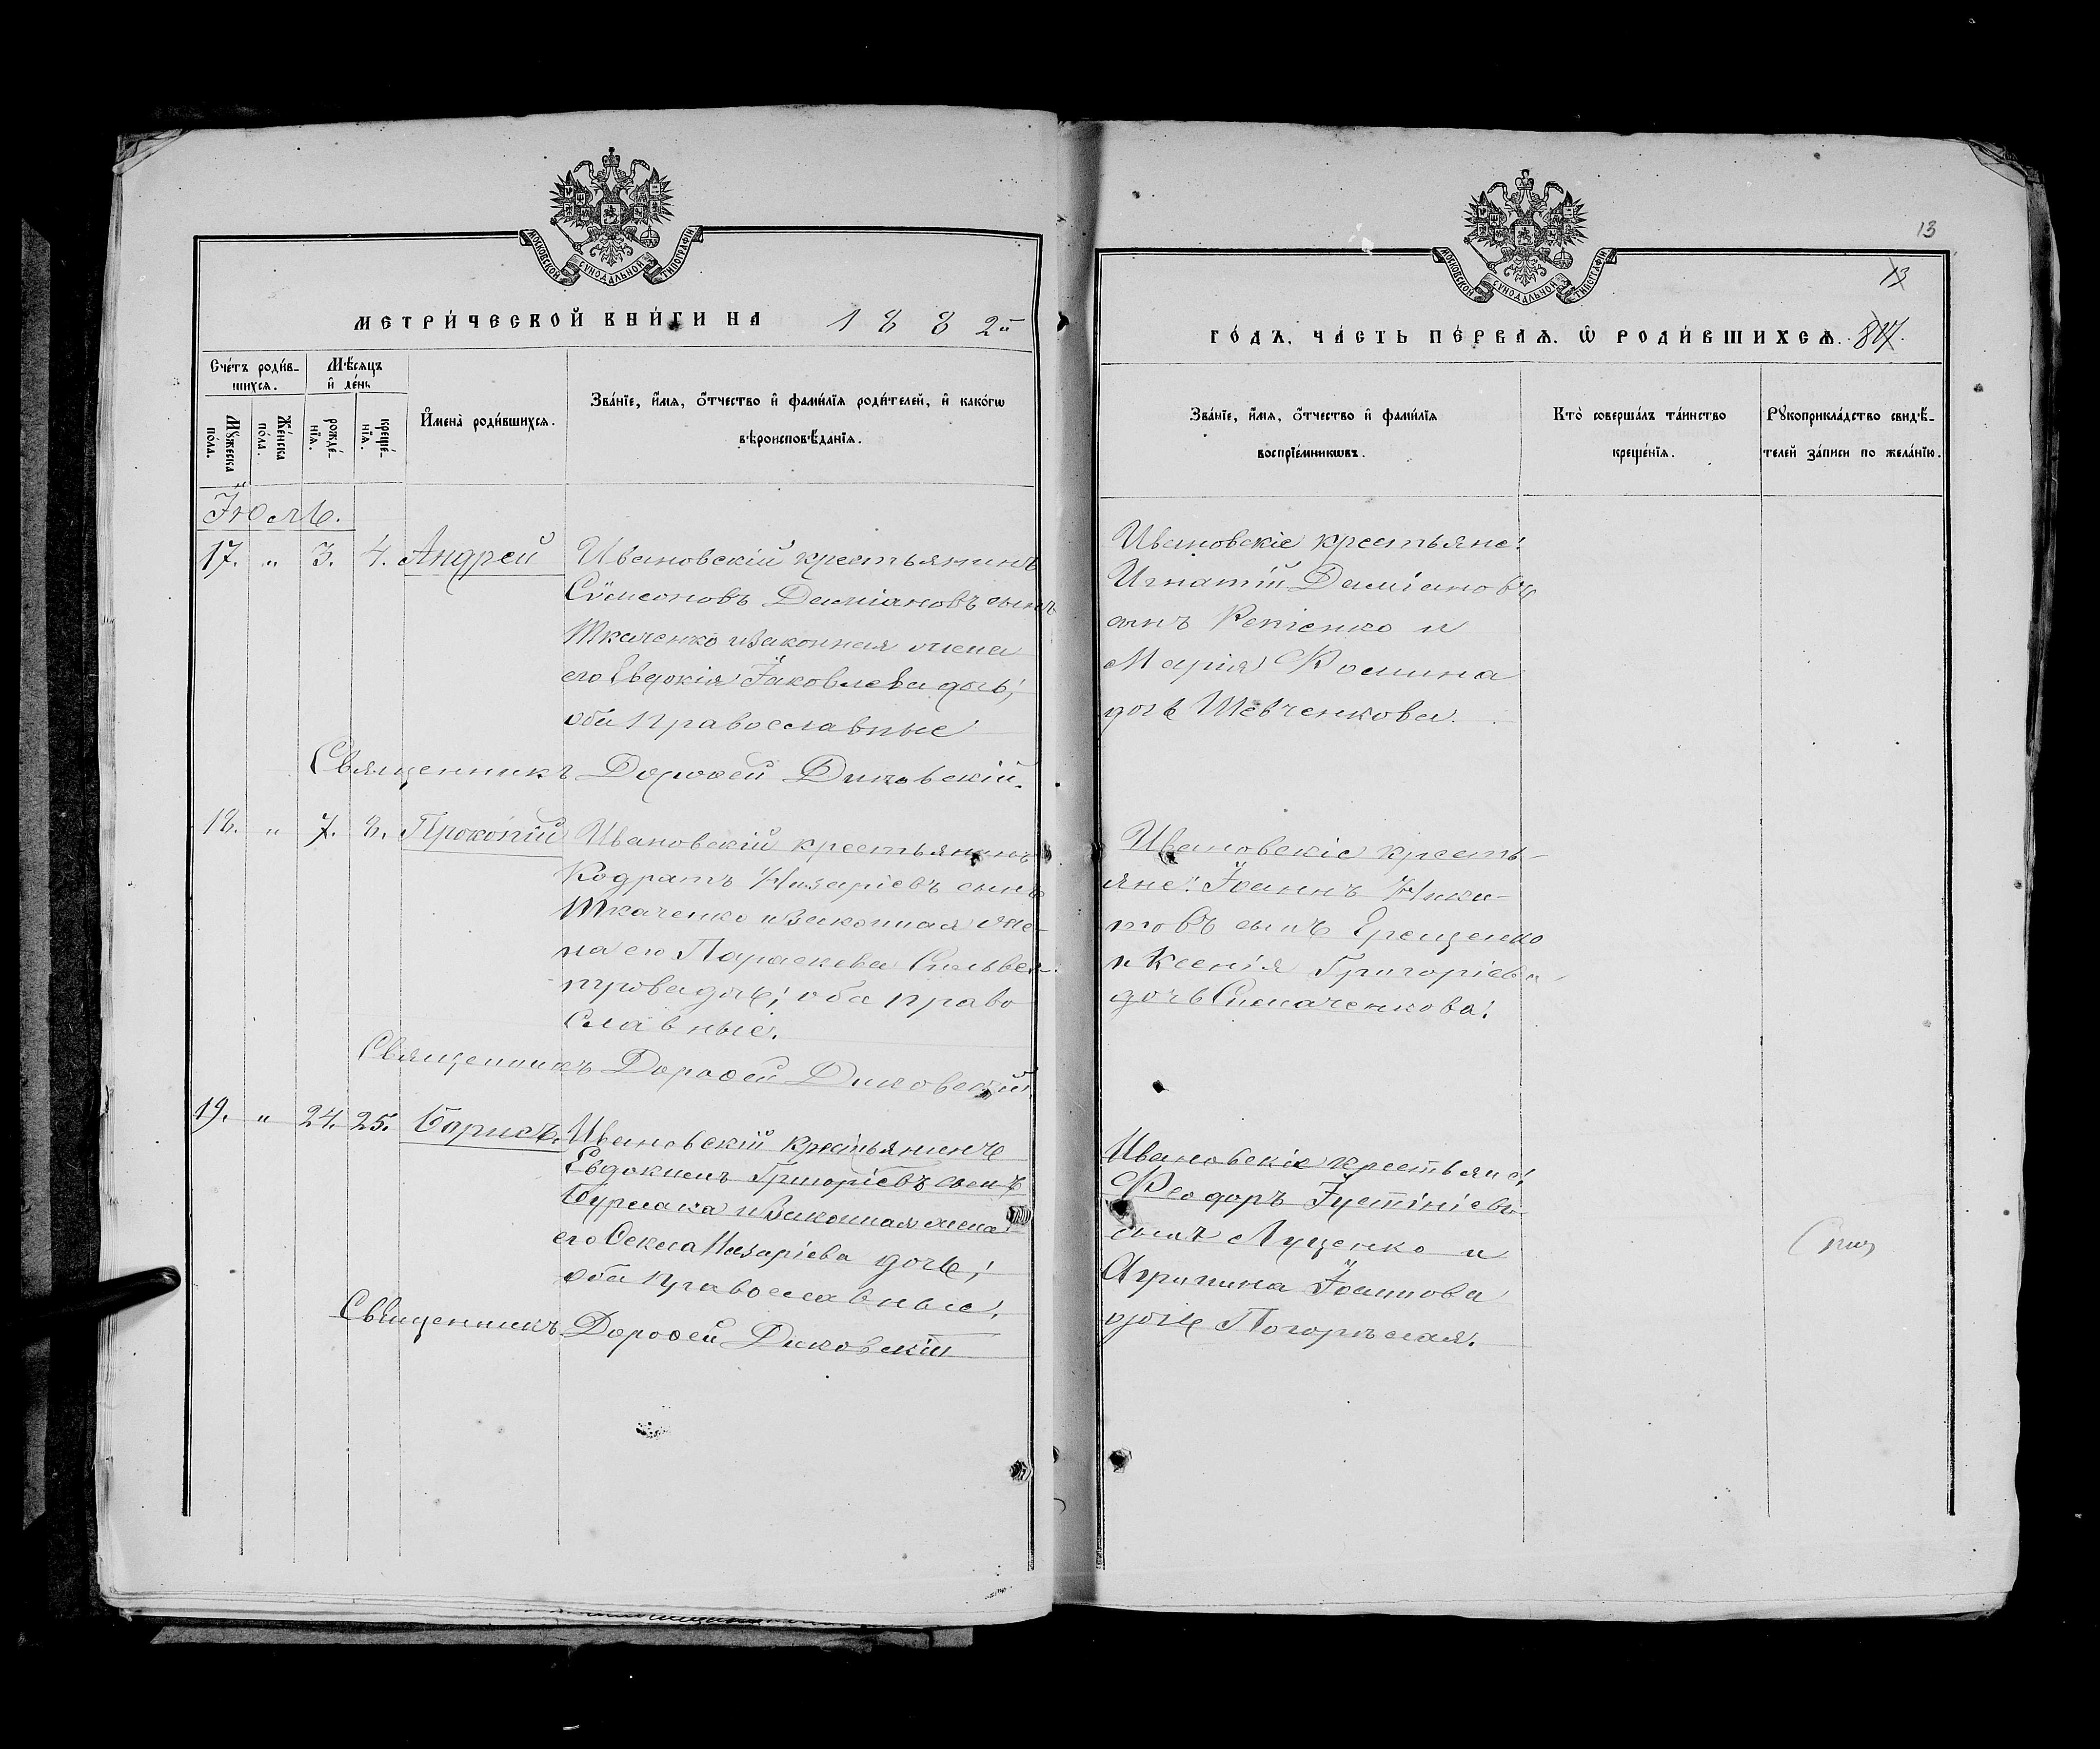 МОСКОВСКОЙ СѴНОДАЛЬНОЙ ТИПОГРАФІИ
МЕТРИ́ЧЕСКОЙ КНИ́ГИ НА 1882й
Сче́тъ роди́в-
шихсѧ.
Мѣ́сѧцъ
и҆ де́нь
Мꙋ́жеска
по́ла.
Же́нска
по́ла.
рожде́-
нїѧ.
креще́-
нїѧ.
И҆мена̀ роди́вшихсѧ.
Зва́нїе, и҆́мѧ, ѻ҆́тчество и҆ фами́лїѧ роди́телей, и҆ како́гѡ
вѣроисповѣ́данїѧ.
Іюль.
17. " 3. 4. Андрей Ивановскій крестьянинъ
Сѵмеоновъ Даміановъ сынъ
Ткаченко и законная жена
его Евдокія Іаковлева дочь;
оба православные
Священникъ Дороѳей Диковскій.
18. " 7. 8. Прокопій Ивановскій крестьянинъ
Кодратъ Назаріевъ сынъ
Ткаченко и законная же-
на его Параскева Сильвес-
трова дочь; оба право
славные.
Священникъ Дороѳей Диковскій
19. " 24. 25. Борисъ. Ивановскій крестьянинъ
Евдокимъ Григоріевъ сынъ
Бурлака и законная жена
его Секлa Назаріева дочь;
оба православные.
Священникъ Дороѳей Диковскій
13
МОСКОВСКОЙ СѴНОДАЛЬНОЙ ТИПОГРАФІИ
13
ГО́ДЪ, ЧА́СТЬ ПЕ́РВАѦ. Ѽ РОДИ́ВШИХСѦ.
Зва́нїе, и҆́мѧ, ѻ҆́тчество и҆ фами́лїѧ
воспрїе́мникѡвъ.
Кто̀ соверша́лъ та́инство
креще́нїѧ.
Рꙋкоприкла́дство свидѣ́-
телей за́писи по жела́нїю.
Ивановскіе крестьяне:
Игнатій Даміановъ
сынъ Репіенко и
Марія Ѳомина
дочь Шевченкова.
Ивановскіе кресть-
яне: Іоаннъ Ники-
товъ сынъ Ерещенко
и Ксенія Григоріева
дочь Симаченкова.
Ивановскіе крестьяне:
Ѳеодоръ Іустініевъ
сынъ Луценко и
Агрипина Іоаннова
дочь Погорѣлая.